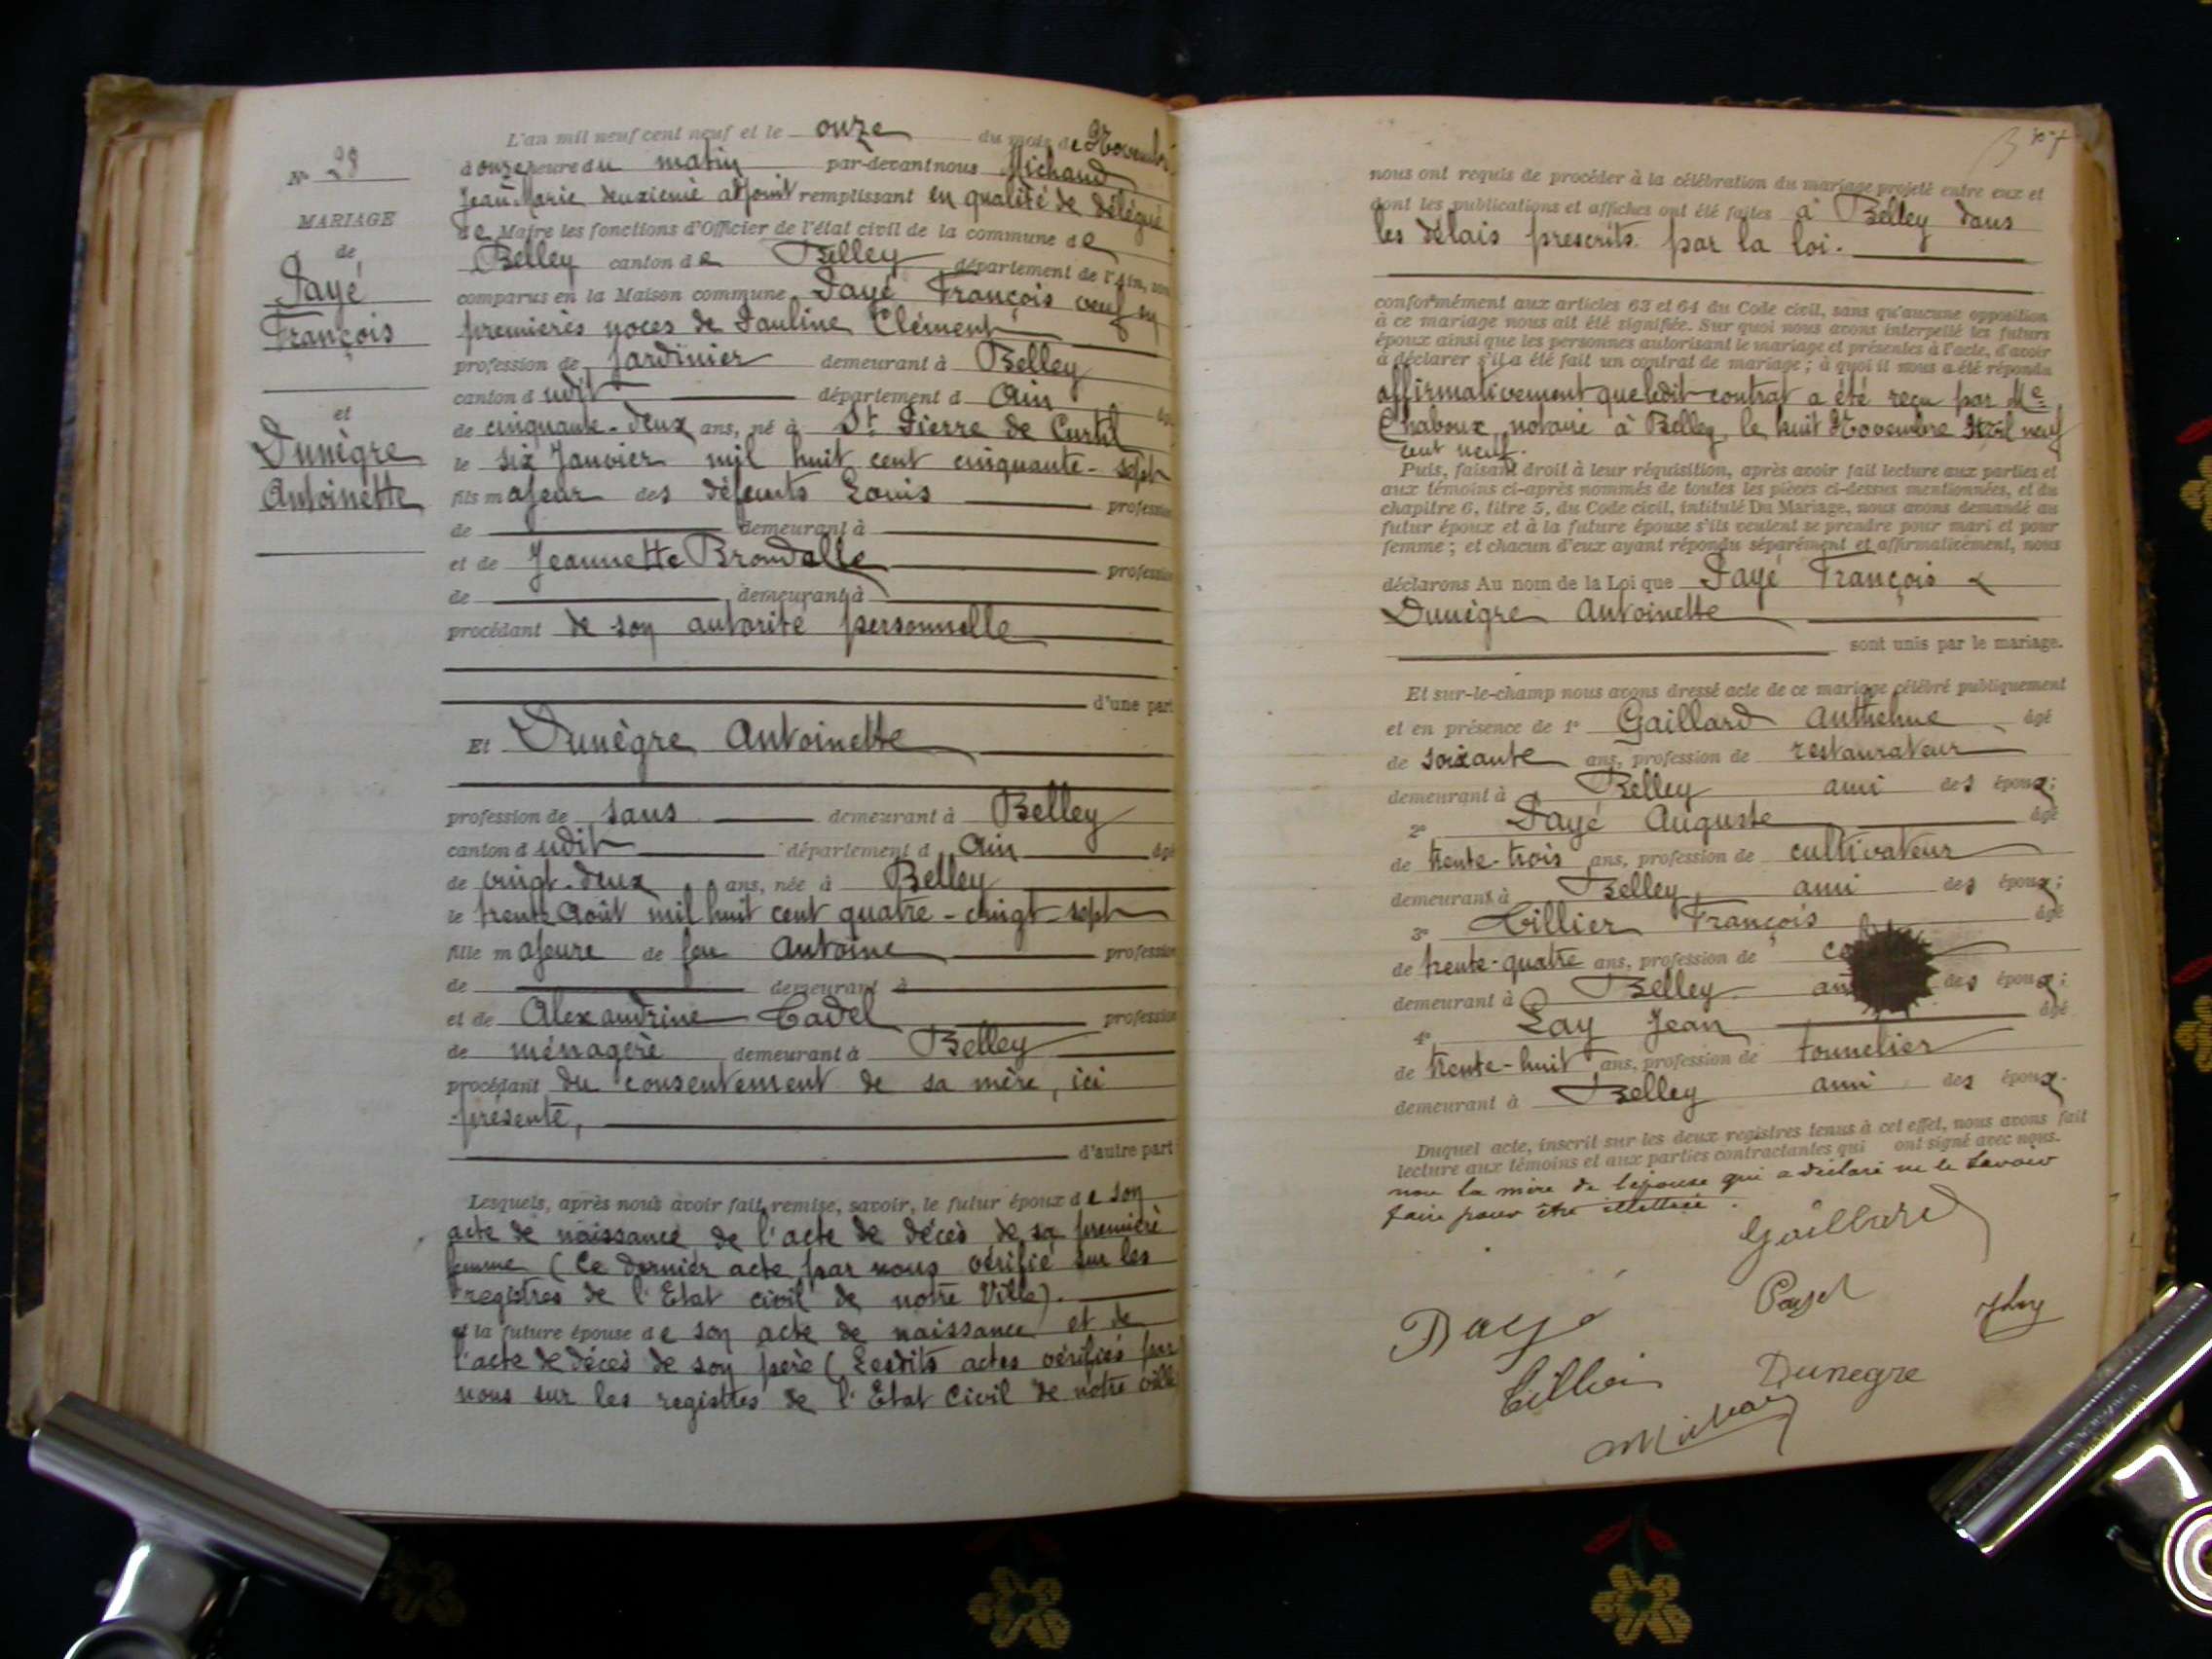 L'an mil neuf cent neuf et le onze du mois de Novembre
N° 28
à onze heure du matin par-devant nous Michaud
Jean-Marie deuxième adjoint remplissant en qualité de délégué
de Maire les fonctions d'Officier de l'état civil de la commune de
Belley canton de Belley département de l'Ain, sont
comparus en la Maison commune Payé François veuf en
premières noces de Pauline Clément
profession de jardinier demeurant à Belley
canton dudit département d Ain âgé
de cinquante-deux ans, né à St Pierre de Curtil
le six Janvier mil huit cent cinquante-sept
fils majeur des défunts Louis profession
de demeurant à
et de Jeannette Brondelle profession
de demeurant à
procédant de son autorité personnelle
d'une part
MARIAGE
de
Payé
François
et
Dunègre
Antoinette
Et Dunègre Antoinette
profession de sans demeurant à Belley
canton dudit département d Ain âgé
de vingt-deux ans, née à Belley
le trente Août mil huit cent quatre-vingt-sept
fille majeure de feu Antoine profession
de demeurant à
et de Alexandrine Cadel profession
de ménagère demeurant à Belley
procédant du consentement de sa mère, ici
présente,
d'autre part
Lesquels, après nous avoir fait remise, savoir, le futur époux de son
acte de naissance de l'acte de décès de sa première
femme (Ce dernier acte par nous vérifié sur les
registres de l'Etat civil de notre Ville).
et la future épouse de son acte de naissance et de
l'acte de décès de son père (Lesdits actes vérifiés par
nous sur les registres de l'Etat Civil de notre ville
nous ont requis de procéder à la célébration du mariage projeté entre eux et
dont les publications et affiches ont été faites à Belley dans
les délais prescrits par la loi.
conformément aux articles 63 et 64 du Code civil, sans qu'aucune opposition
à ce mariage nous ait été signifiée. Sur quoi nous avons interpellé les futurs
époux ainsi que les personnes autorisant le mariage et présentes à l'acte, d'avoir
à déclarer s'il a été fait un contrat de mariage ; à quoi il nous a été répondu
affirmativement que ledit contrat a été reçu par Me
Chaboux, notaire à Belley, le huit Novembre Mil neuf
cent neuf.
Puis, faisant droit à leur réquisition, après avoir fait lecture aux parties et
aux témoins ci-après nommés de toutes les pièces ci-dessus mentionnées, et du
chapitre 6, titre 5, du Code civil, intitulé Du Mariage, nous avons demandé au
futur époux et à la future épouse s'ils veulent se prendre pour mari et pour
femme ; et chacun d'eux ayant répondu séparément et affirmativement, nous
déclarons Au nom de la Loi que Payé François &
Dunègre Antoinette
sont unis par le mariage.
Et sur-le-champ nous avons dressé acte de ce mariage célébré publiquement
et en présence de 1° Gaillard Anthelme âgé
de soixante ans, profession de restaurateur
demeurant à Belley ami des époux;
2° Payé Auguste âgé
de trente-trois ans, profession de cultivateur
demeurant à Belley ami des époux;
3° Tillier François âgé
de trente-quatre ans, profession de
demeurant à Belley des époux;
4° Lay Jean âgé
de trente-huit ans, profession de tonnelier
demeurant à Belley ami des époux.
Duquel acte, inscrit sur les deux registres tenus à cet effet, nous avons fait
lecture aux témoins et aux parties contractantes qui ont signé avec nous.
non la mère de l'épouse qui a déclaré ne le savoir
faire pour être illettrée.
Gaillard
Payé
Tillier
Dunegre
Michaud